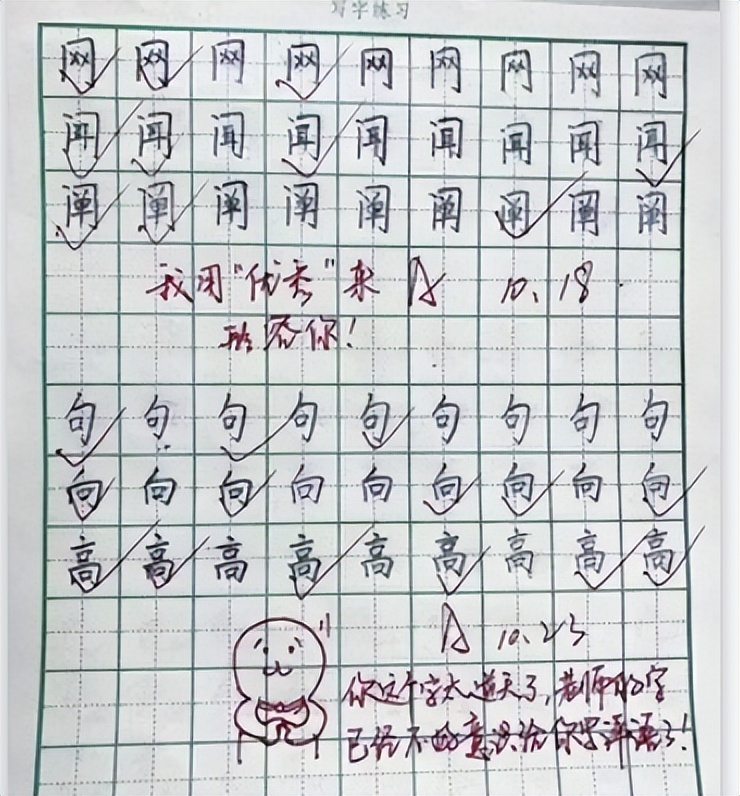 写字练习
网网网网网网网网网
闻闻闻闻闻闻闻闻闻
阐阐阐阐阐阐阐阐阐
我用“优秀”来 A 10.18.
形容你!
句句句句句句句句句
向向向向向向向向向
高高高高高高高高高
A 10.23
你这个字太逆天了,老师的字
已经不好意思给你写评语了!